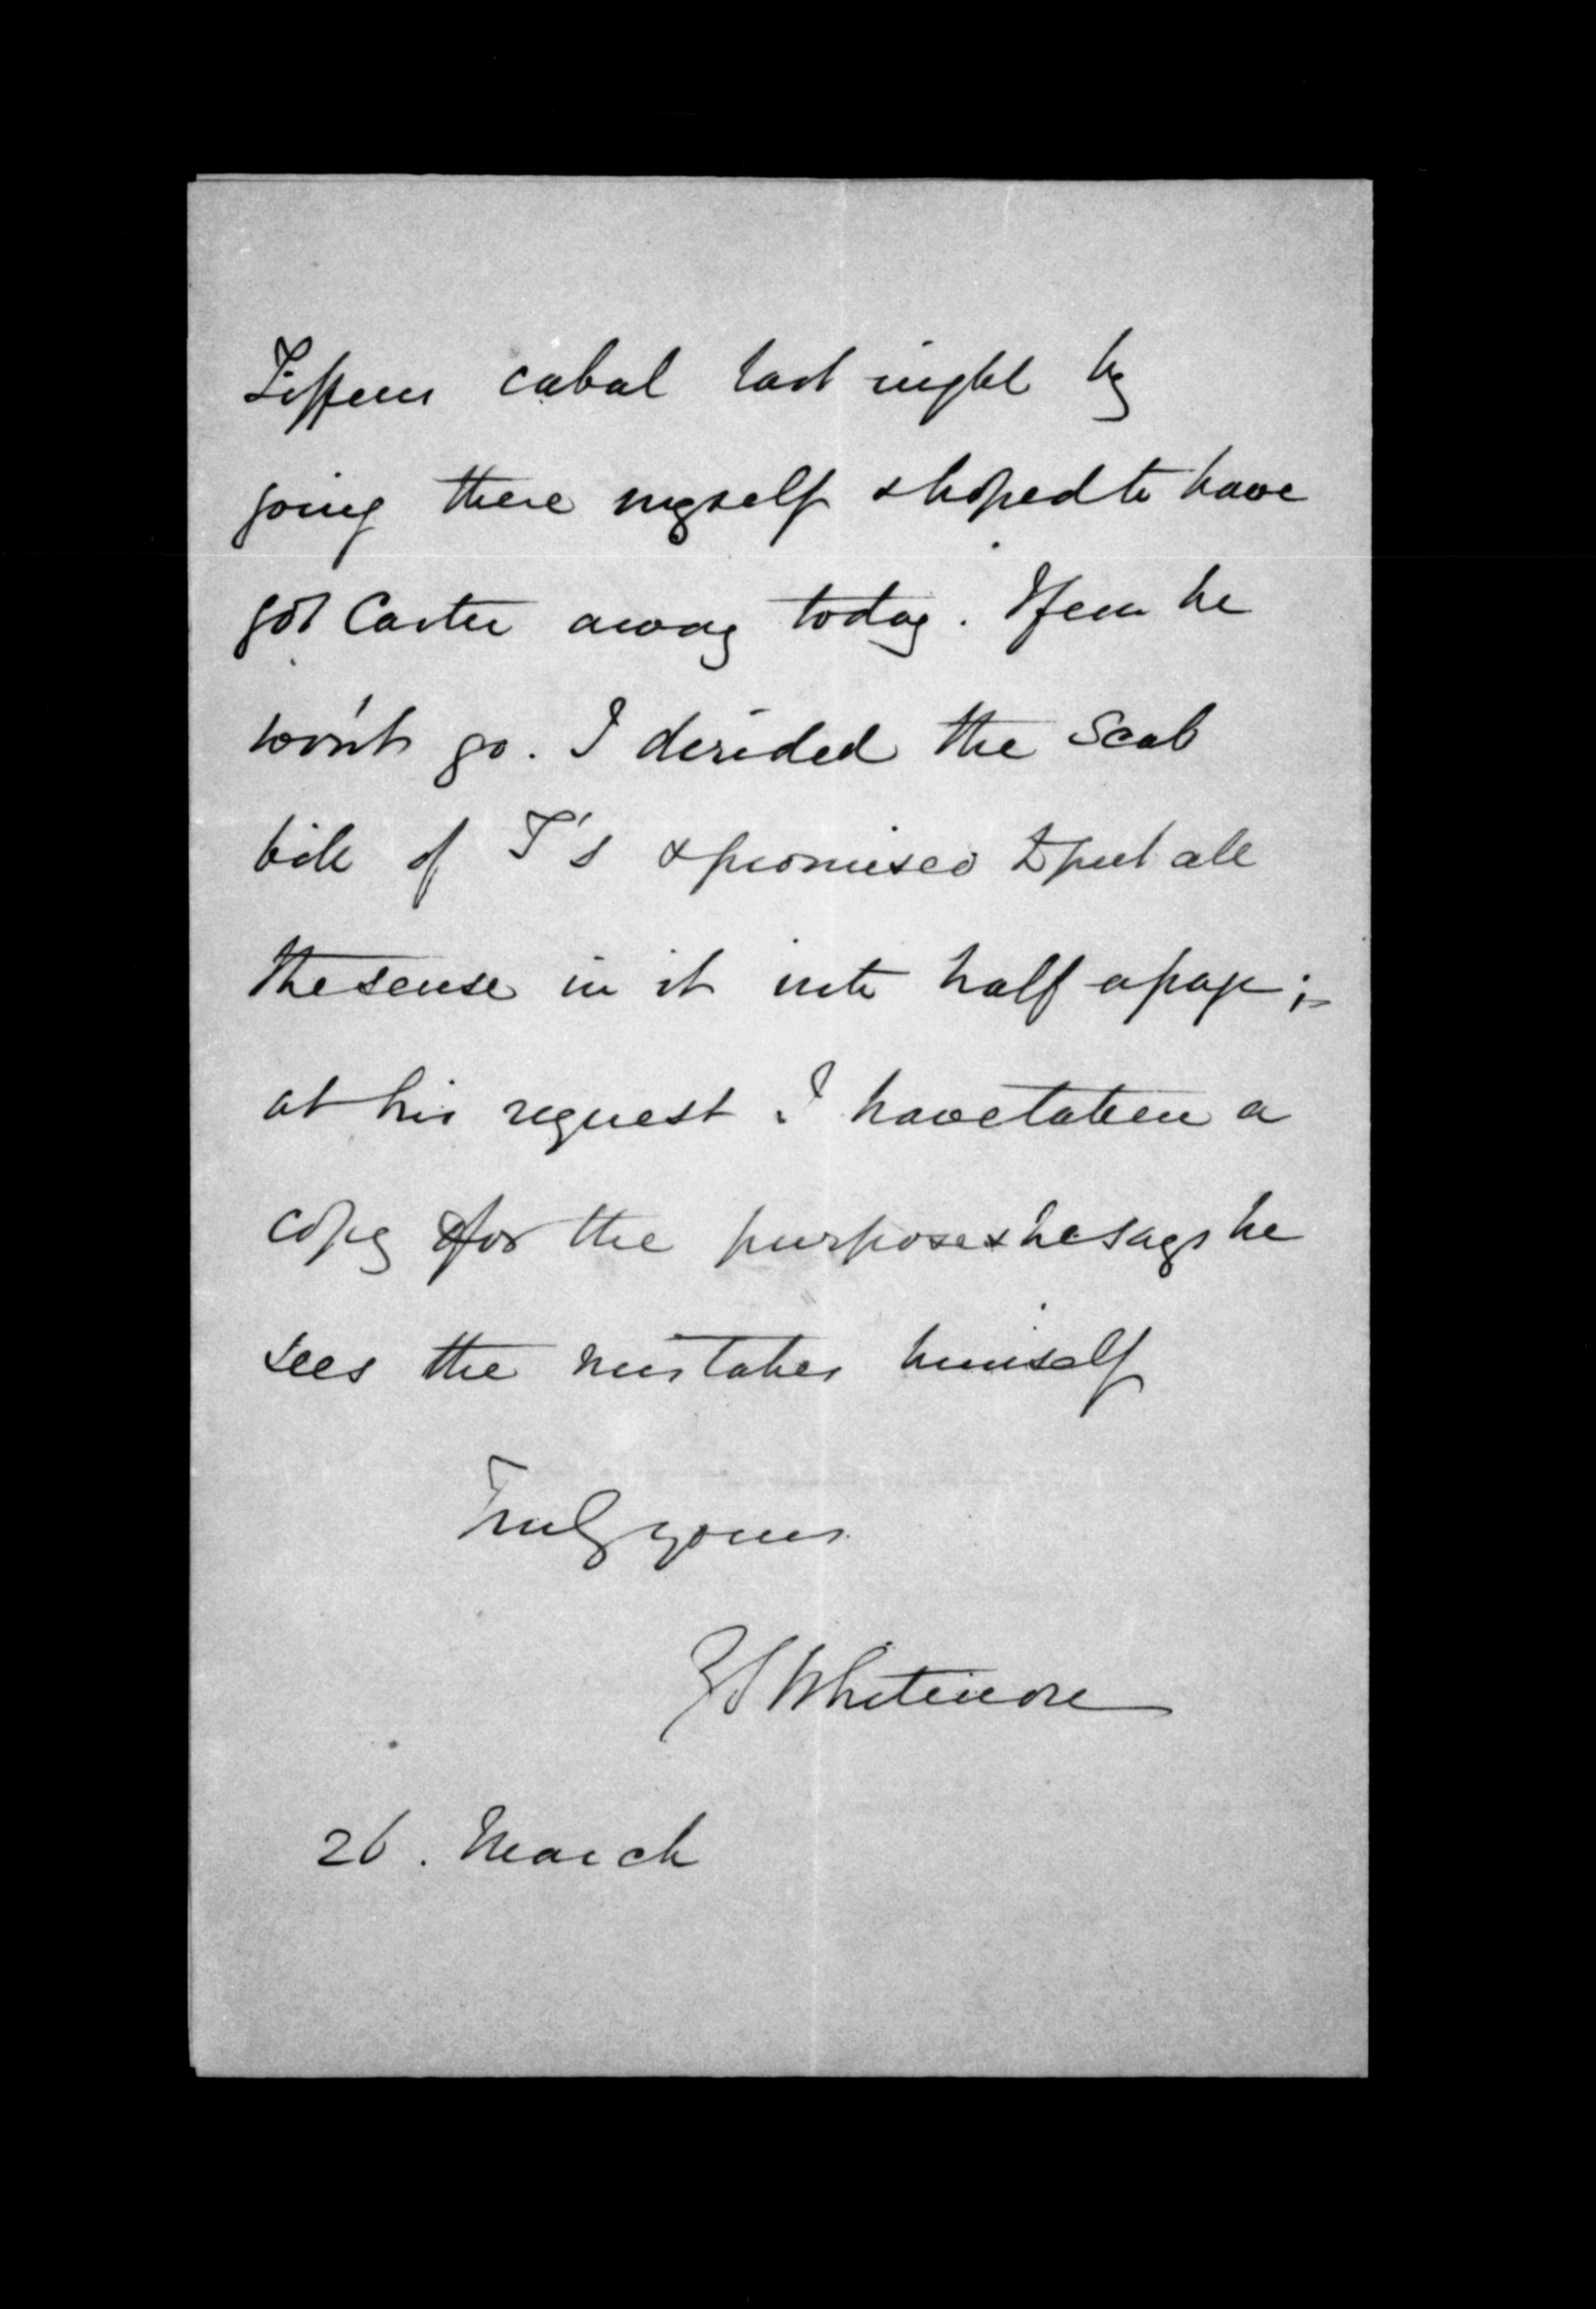 Tiffens cabal last night by
going there myself & hoped to have
got Carter away today. I fear he
won't go. I derided the Scab
bill of T's & promised to put all
the sense in it into half a page;-
at his request. I have taken a
copy for the purpose & he says he
sees the mistakes himself
Truly yours
GS Whitmore
26. March